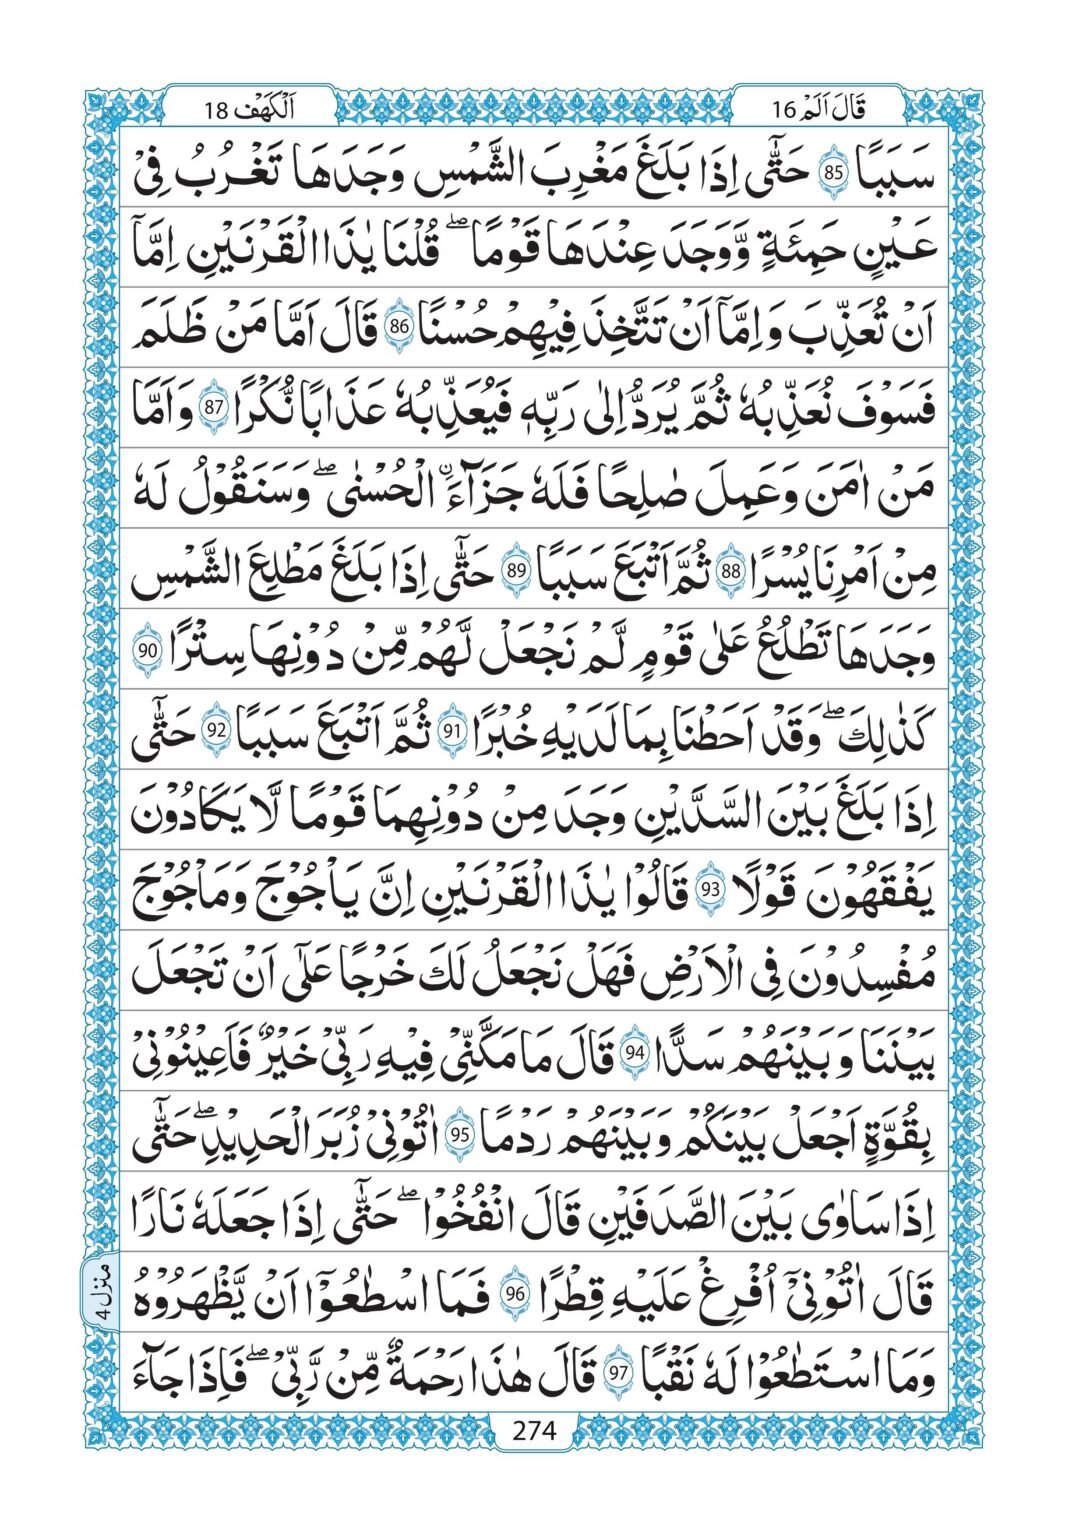 قَالَ اَلَمْ 16
اَلْكَهَفْ 18
سَبَبًا 85 حَتّٰۤى اِذَا بَلَغَ مَغْرِبَ الشَّمْسِ وَجَدَهَا تَغْرُبُ فِیْ
عَیْنٍ حَمِئَةٍ وَّوَجَدَ عِنْدَهَا قَوْمًا ۖ قُلْنَا یٰذَا الْقَرْنَیْنِ اِمَّاۤ
اَنْ تُعَذِّبَ وَ اِمَّاۤ اَنْ تَتَّخِذَ فِیْهِمْ حُسْنًا 86 قَالَ اَمَّا مَنْ ظَلَمَ
فَسَوْفَ نُعَذِّبُهٗ ثُمَّ یُرَدُّ اِلٰی رَبِّهٖ فَیُعَذِّبُهٗ عَذَابًا نُّكْرًا 87 وَ اَمَّا
مَنْ اٰمَنَ وَعَمِلَ صٰلِحًا فَلَهٗ جَزَآءَ ِ۟الْحُسْنٰی ۖ وَسَنَقُوْلُ لَهٗ
مِنْ اَمْرِنَا یُسْرًا 88 ثُمَّ اَتْبَعَ سَبَبًا 89 حَتّٰۤی اِذَا بَلَغَ مَطْلِعَ الشَّمْسِ
وَجَدَهَا تَطْلُعُ عَلٰی قَوْمٍ لَّمْ نَجْعَلْ لَّهُمْ مِّنْ دُوْنِهَا سِتْرًا 90
كَذٰلِكَ ۖ وَقَدْ اَحَطْنَا بِمَا لَدَیْهِ خُبْرًا 91 ثُمَّ اَتْبَعَ سَبَبًا 92 حَتّٰۤی
اِذَا بَلَغَ بَیْنَ السَّدَّیْنِ وَجَدَ مِنْ دُوْنِهِمَا قَوْمًا لَّا یَكَادُوْنَ
یَفْقَهُوْنَ قَوْلًا 93 قَالُوْا یٰذَا الْقَرْنَیْنِ اِنَّ یَاْجُوْجَ وَمَاْجُوْجَ
مُفْسِدُوْنَ فِی الْاَرْضِ فَهَلْ نَجْعَلُ لَكَ خَرْجًا عَلٰۤی اَنْ تَجْعَلَ
بَیْنَنَا وَ بَیْنَهُمْ سَدًّا 94 قَالَ مَا مَكَّنِّیْ فِیْهِ رَبِّیْ خَیْرٌ فَاَعِیْنُوْنِیْ
بِقُوَّةٍ اَجْعَلْ بَیْنَكُمْ وَ بَیْنَهُمْ رَدْمًا 95 اٰتُوْنِیْ زُبَرَ الْحَدِیْدِ ۖ حَتّٰۤی
اِذَا سَاوٰی بَیْنَ الصَّدَفَیْنِ قَالَ انْفُخُوْا ۖ حَتّٰۤی اِذَا جَعَلَهٗ نَارًا
قَالَ اٰتُوْنِیْۤ اُفْرِغْ عَلَیْهِ قِطْرًا 96 فَمَا اسْطٰعُوْۤا اَنْ یَّظْهَرُوْهُ
وَمَا اسْتَطٰعُوْا لَهٗ نَقْبًا 97 قَالَ هٰذَا رَحْمَةٌ مِّنْ رَّبِّیْ ۖ فَاِذَا جَآءَ
منزل 4
274